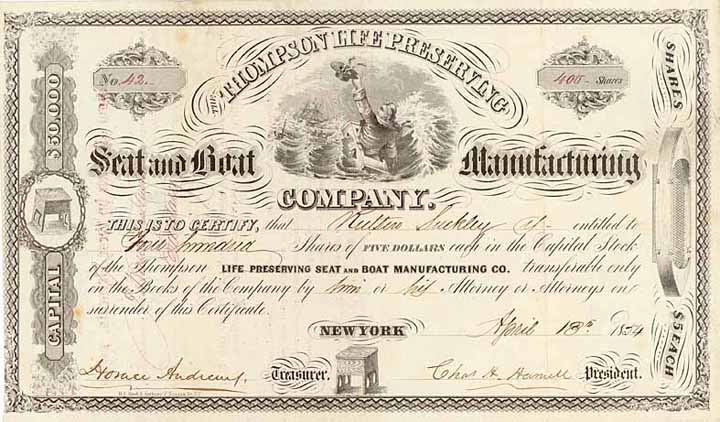 THE THOMPSON LIFE PRESERVING
No. 42.
400 Shares
Seat and Boat Manufacturing
COMPANY.
THIS IS TO CERTIFY, that of entitled to
Four hundred Shares of FIVE DOLLARS each in the Capital Stock
of the Thompson LIFE PRESERVING SEAT AND BOAT MANUFACTURING CO. transferable only
on the Books of the Company by him or his Attorney or Attorneys on
surrender of this Certificate.
NEW YORK April 13th 1854
Horace Andrews, Treasurer. Chas H. President.
CAPITAL $50,000
SHARES $5 EACH